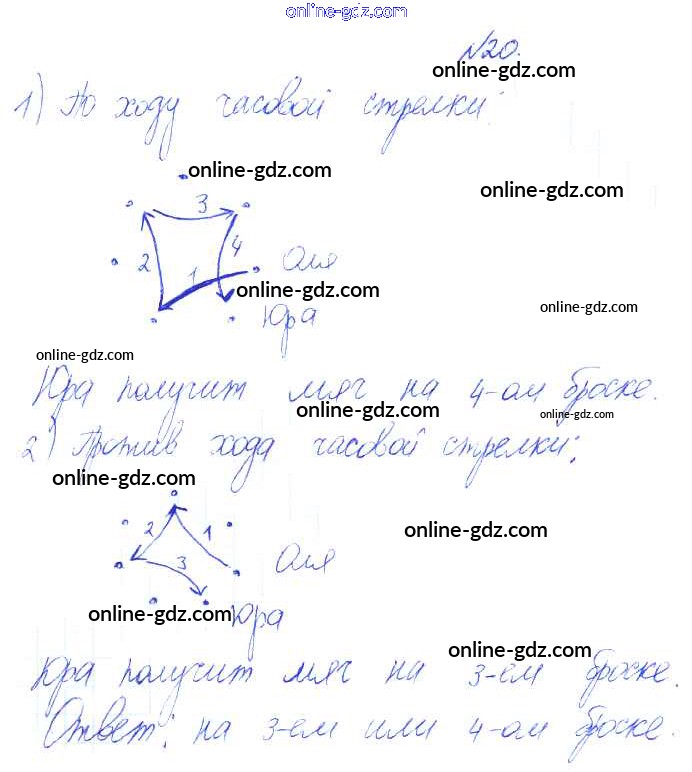 online-gdz.com
№20.
online-gdz.com
1) По ходу часовой стрелки:
online-gdz.com
online-gdz.com
3
2 4
1 Оля
online-gdz.com
online-gdz.com
Юра
online-gdz.com
Юра получит мяч на 4-ом броске.
online-gdz.com
online-gdz.com
2) Против хода часовой стрелки:
online-gdz.com
2 1
online-gdz.com
3 Оля
online-gdz.com
Юра
online-gdz.com
Юра получит мяч на 3-ем броске.
Ответ: на 3-ем или 4-ом броске.